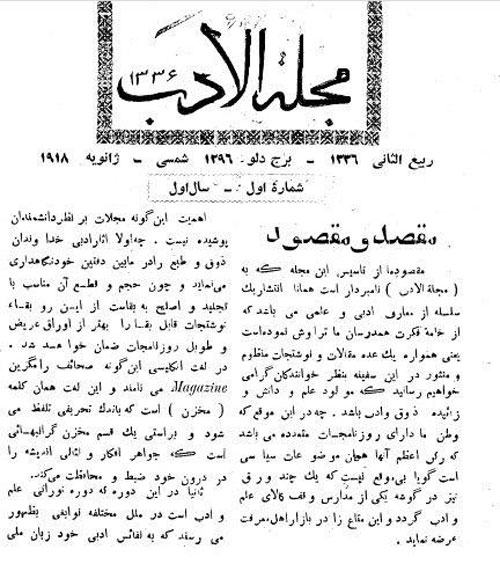 مجلة الأدب
۱۳۳۶
ربیع الثانی ۱۳۳۶ - برج دلو ۱۲۹۶ شمسی - ژانویه ۱۹۱۸
شمارهٔ اول - سال اول
مقصد و مقصود
مقصود ما از تاسیس این مجله که به
( مجلة الادب ) نامبردار است همانا انتشار یك
سلسله از معارف ادبی و علمی می باشد که
از خامهٔ فکرت همدرسان ما تراوش نموده است
یعنی همواره یك عده مقالات و نوشتجات منظوم
و منثور در این سفینه بنظر خوانندگان گرامی
خواهیم رسانید که مولود علم و دانش و
زائیده ذوق وادب باشد . چه در این موقع که
وطن ما دارای روزنامجات متعدده می باشد
که رکن اعظم آنها همان موضوعات سیاسی
است گویا بی‌موقع نیست که یك چند ورق
نیز در گوشه یکی از مدارس وقف کالای علم
و ادب گردد و این متاع را در بازار اهل معرفت
عرضه نماید .
اهمیت این گونه مجلات بر نظر دانشمندان
پوشیده نیست . چه اولا آثار ادبی خداوندان
ذوق و طبع را در مابین دفتین خود نگاهداری
می‌نماید و چون حجم و قطع آن مناسب با
تجلید و اصلح به بقاست از این رو بقاء
نوشتجات قابل بقا را بهتر از اوراق عریض
و طویل روزنامجات ضمان خواهد شد .
در لغت انگلیسی این گونه صحائف را مگزین
Magazine می نامند و این لغت همان کلمه
( مخزن ) است که باندك تحریفی تلفظ می
شود و براستی یك قسم مخزن گرانبهائی
است که جواهر افکار و لئالی اندیشه را
در درون خود ضبط و محافظت می‌کند .
ثانیا در این دوره که دوره نورانی علم
و ادب است در ملل مختلفه نوابغی بظهور
می رسند که به نفائس ادبی خود زبان ملی